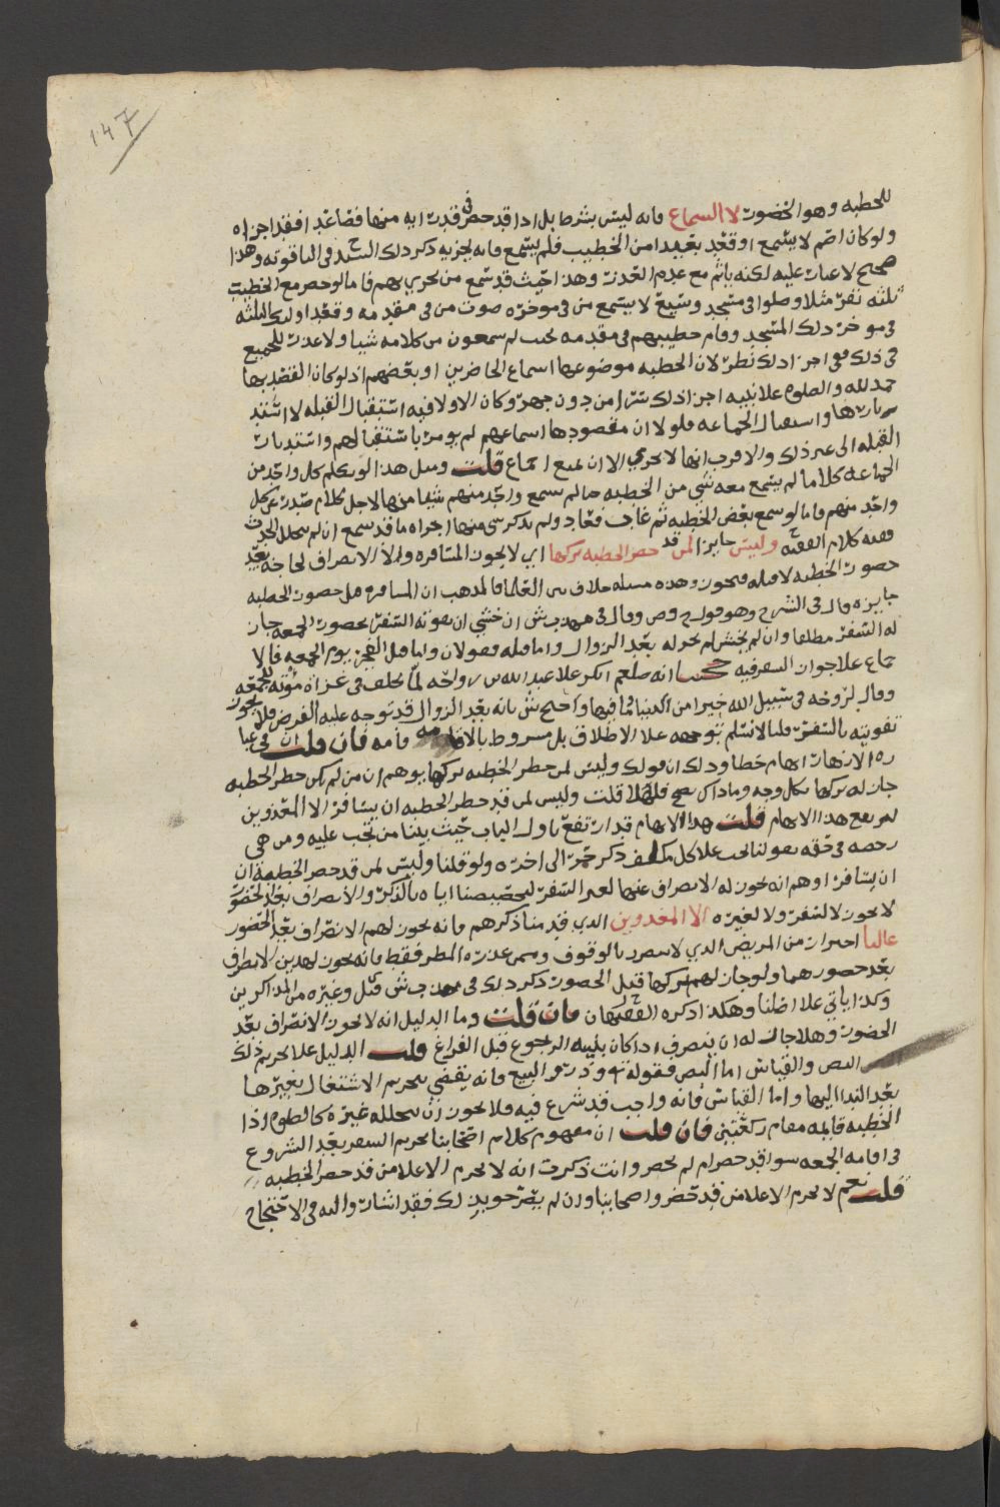 147
للخطبه وهو الحضور لا السماع فانه ليس بشرط بل اذا قد حضر في قدر ايه منها فصاعدا فقد اجزاه
ولو كان اصم لا يسمع او قعد بعيدا من الخطيب فلم يسمع فانه يجزيه ذكر ذلك السيد في الياقوته وهذا
صحيح لا غبار عليه لكنه ياثم مع عدم العذر وهذا حيث قد سمع من يجزي بهم فاما لو حضر مع الخطيب
ثلثه نفر مثلا وصلوا في مسجد وسيع لا يسمع من في موخره صوت من في مقدمه وقعد اولئك الثلثه
في موخر ذلك المسجد وقام خطيبهم في مقدمه بحيث لم يسمعون من كلامه شيا ولا عذر للجميع
في ذلك ففي اجزا ذلك نظر لان الخطبه موضوعها اسماع الحاضرين او بعضهم اذ لو كان القصد بها
حمد لله والصلوه على نبيه اجزا ذلك سرا من دون جهر وكان الاولا فيه استقبال القبله لا استد
بارها واستقبال الجماعه فلولا ان مقصودها اسماعهم لم يومر باستقبالهم واستدبار
القبله الى غير ذلك والاقرب انها لا تجزي الا ان يمنع اجماع قلت ومثل هذا لو تكلم كل واحد من
الجماعه كلاما لم يسمع معه شي من الخطبه ما لم يسمع واحد منهم شيا منها لاجل كلام صدر عن كل
واحد منهم فاما لو سمع بعض الخطبه ثم غاب فعاد ولم يذكر شي منها اجزاه ما قد سمع ان لم يتخلل الحدث
فهذه كلام الفقيه وليس جايزا لمن قد حضر الخطبه تركها اي لا يجوز المسافره ولا الانصراف لحاجه بعد
حضور الخطبه لا قبله فيجوز وهذه مسله خلاف بين العلما فالمذهب ان المسافره قبل حضور الخطبه
جايزه قال في الشرح وهو قول ح وص وقال في مهذب ش ان خشي ان يفوته السفر بحضور الجمعه جاز
له السفر مطلقا وان لم يخش لم يجز له بعد الزوال واما قبله فقولان واما قبل الفجر يوم الجمعه فالا
جماع على جواز السفر فيه حجتنا انه صلعم انكر على عبد الله بن رواحه لما تخلف في غزاة موته للجمعه
وقال لروحه في سبيل الله خير من الدنيا وما فيها واحتج ش بانه بعد الزوال قد توجه عليه الفرض فلا يجوز
تفويته بالسفر قلنا لا نسلم توجهه على الاطلاق بل مشروط بالاقامه فان قلت ان في عبا
ره الازهار ايهام خطا وذلك ان قولك وليس لمن حضر الخطبه تركها يوهم ان من لم يكن حضر الخطبه
جاز له تركها بكل وجه وما ذاك يصح فهلا قلت وليس لمن قد حضر الخطبه ان يسافر الا المعذورين
ليرتفع هذا الايهام قلت هذا الايهام قد ارتفع باول الباب حيث بينا من تجب عليه ومن هي
رخصه في حقه بقولنا تجب على كل مكلف ذكر حر الى اخره ولو قلنا وليس لمن قد حضر الخطبه ان
ان يسافر اوهم انه يجوز له الانصراف عنها لغير السفر لتخصيصنا اياه بالذكر والانصراف بعد الحضور
لا يجوز لا لسفر ولا لغيره الا المعذورين الذي قدمنا ذكرهم فانه يجوز لهم الانصراف بعد الحضور
غالبا احتراز من المريض الذي لا يتضرر بالوقوف ومن عذره المطر فقط فانه لا يجوز لهذين الانصراف
بعد حضورهما ولو جاز لهم تركها قبل الحضور ذكر ذلك في مهذب ش وغيره من المذاكرين
وكذا ياتي على اصلنا وهكذا ذكره الفقيهان فان قلت وما الدليل انه لا يجوز الانصراف بعد
الحضور وهلا جاز له ان ينصرف اذا كان بنيه الرجوع قبل الفراغ قلت الدليل على تحريم ذلك
النص والقياس اما النص فقوله تع وذروا البيع فانه يقضي بتحريم الاشتغال بغيرها
بعد الندا اليها واما القياس فانه واجب قد شرع فيه فلا يجوز ان يتخلله غيره كالظهر اذا
الخطبه قايمه مقام ركعتين فان قلت ان مفهوم كلام اصحابنا تحريم السفر بعد الشروع
في اقامه الجمعه سوا قد حضر ام لم يحضر وانت ذكرت انه لا يحرم الا على من قد حضر الخطبه
قلت نعم لا يحرم الا على من قد حضر واصحابنا وان لم يصرحو بذلك فقد اشاروا اليه في الاحتجاج